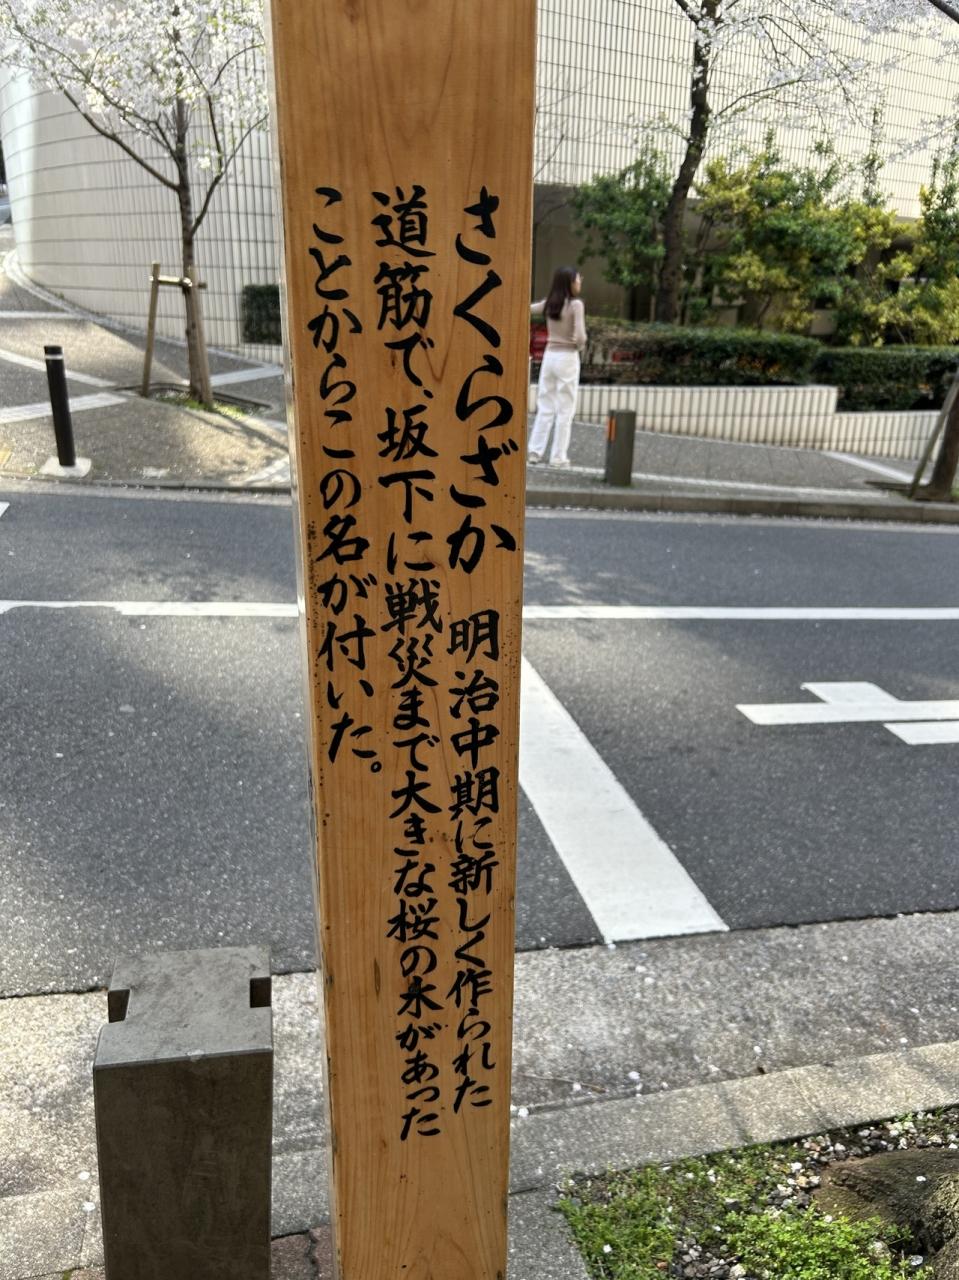 さくらざか　明治中期に新しく作られた
道筋で、坂下に戦災まで大きな桜の木があった
ことからこの名が付いた。